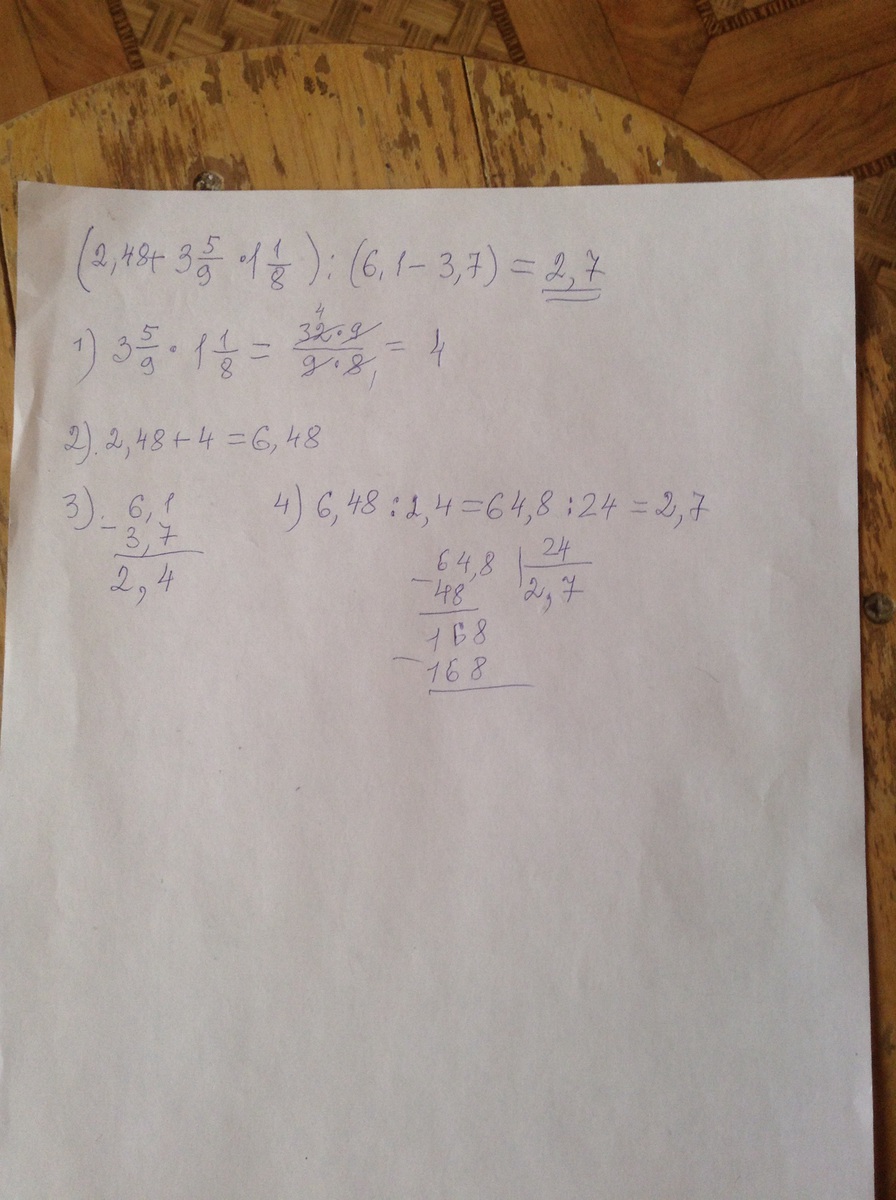 (2,48+ 3 5/9 · 1 1/8) : (6,1 - 3,7) = 2,7
1) 3 5/9 · 1 1/8 = 32·9/9·8 = 4
4
1
2). 2,48 + 4 = 6,48
3). 6,1
- 3,7
2,4
4) 6,48 : 2,4 = 64,8 : 24 = 2,7
- 64,8 | 24
48 2,7
168
- 168